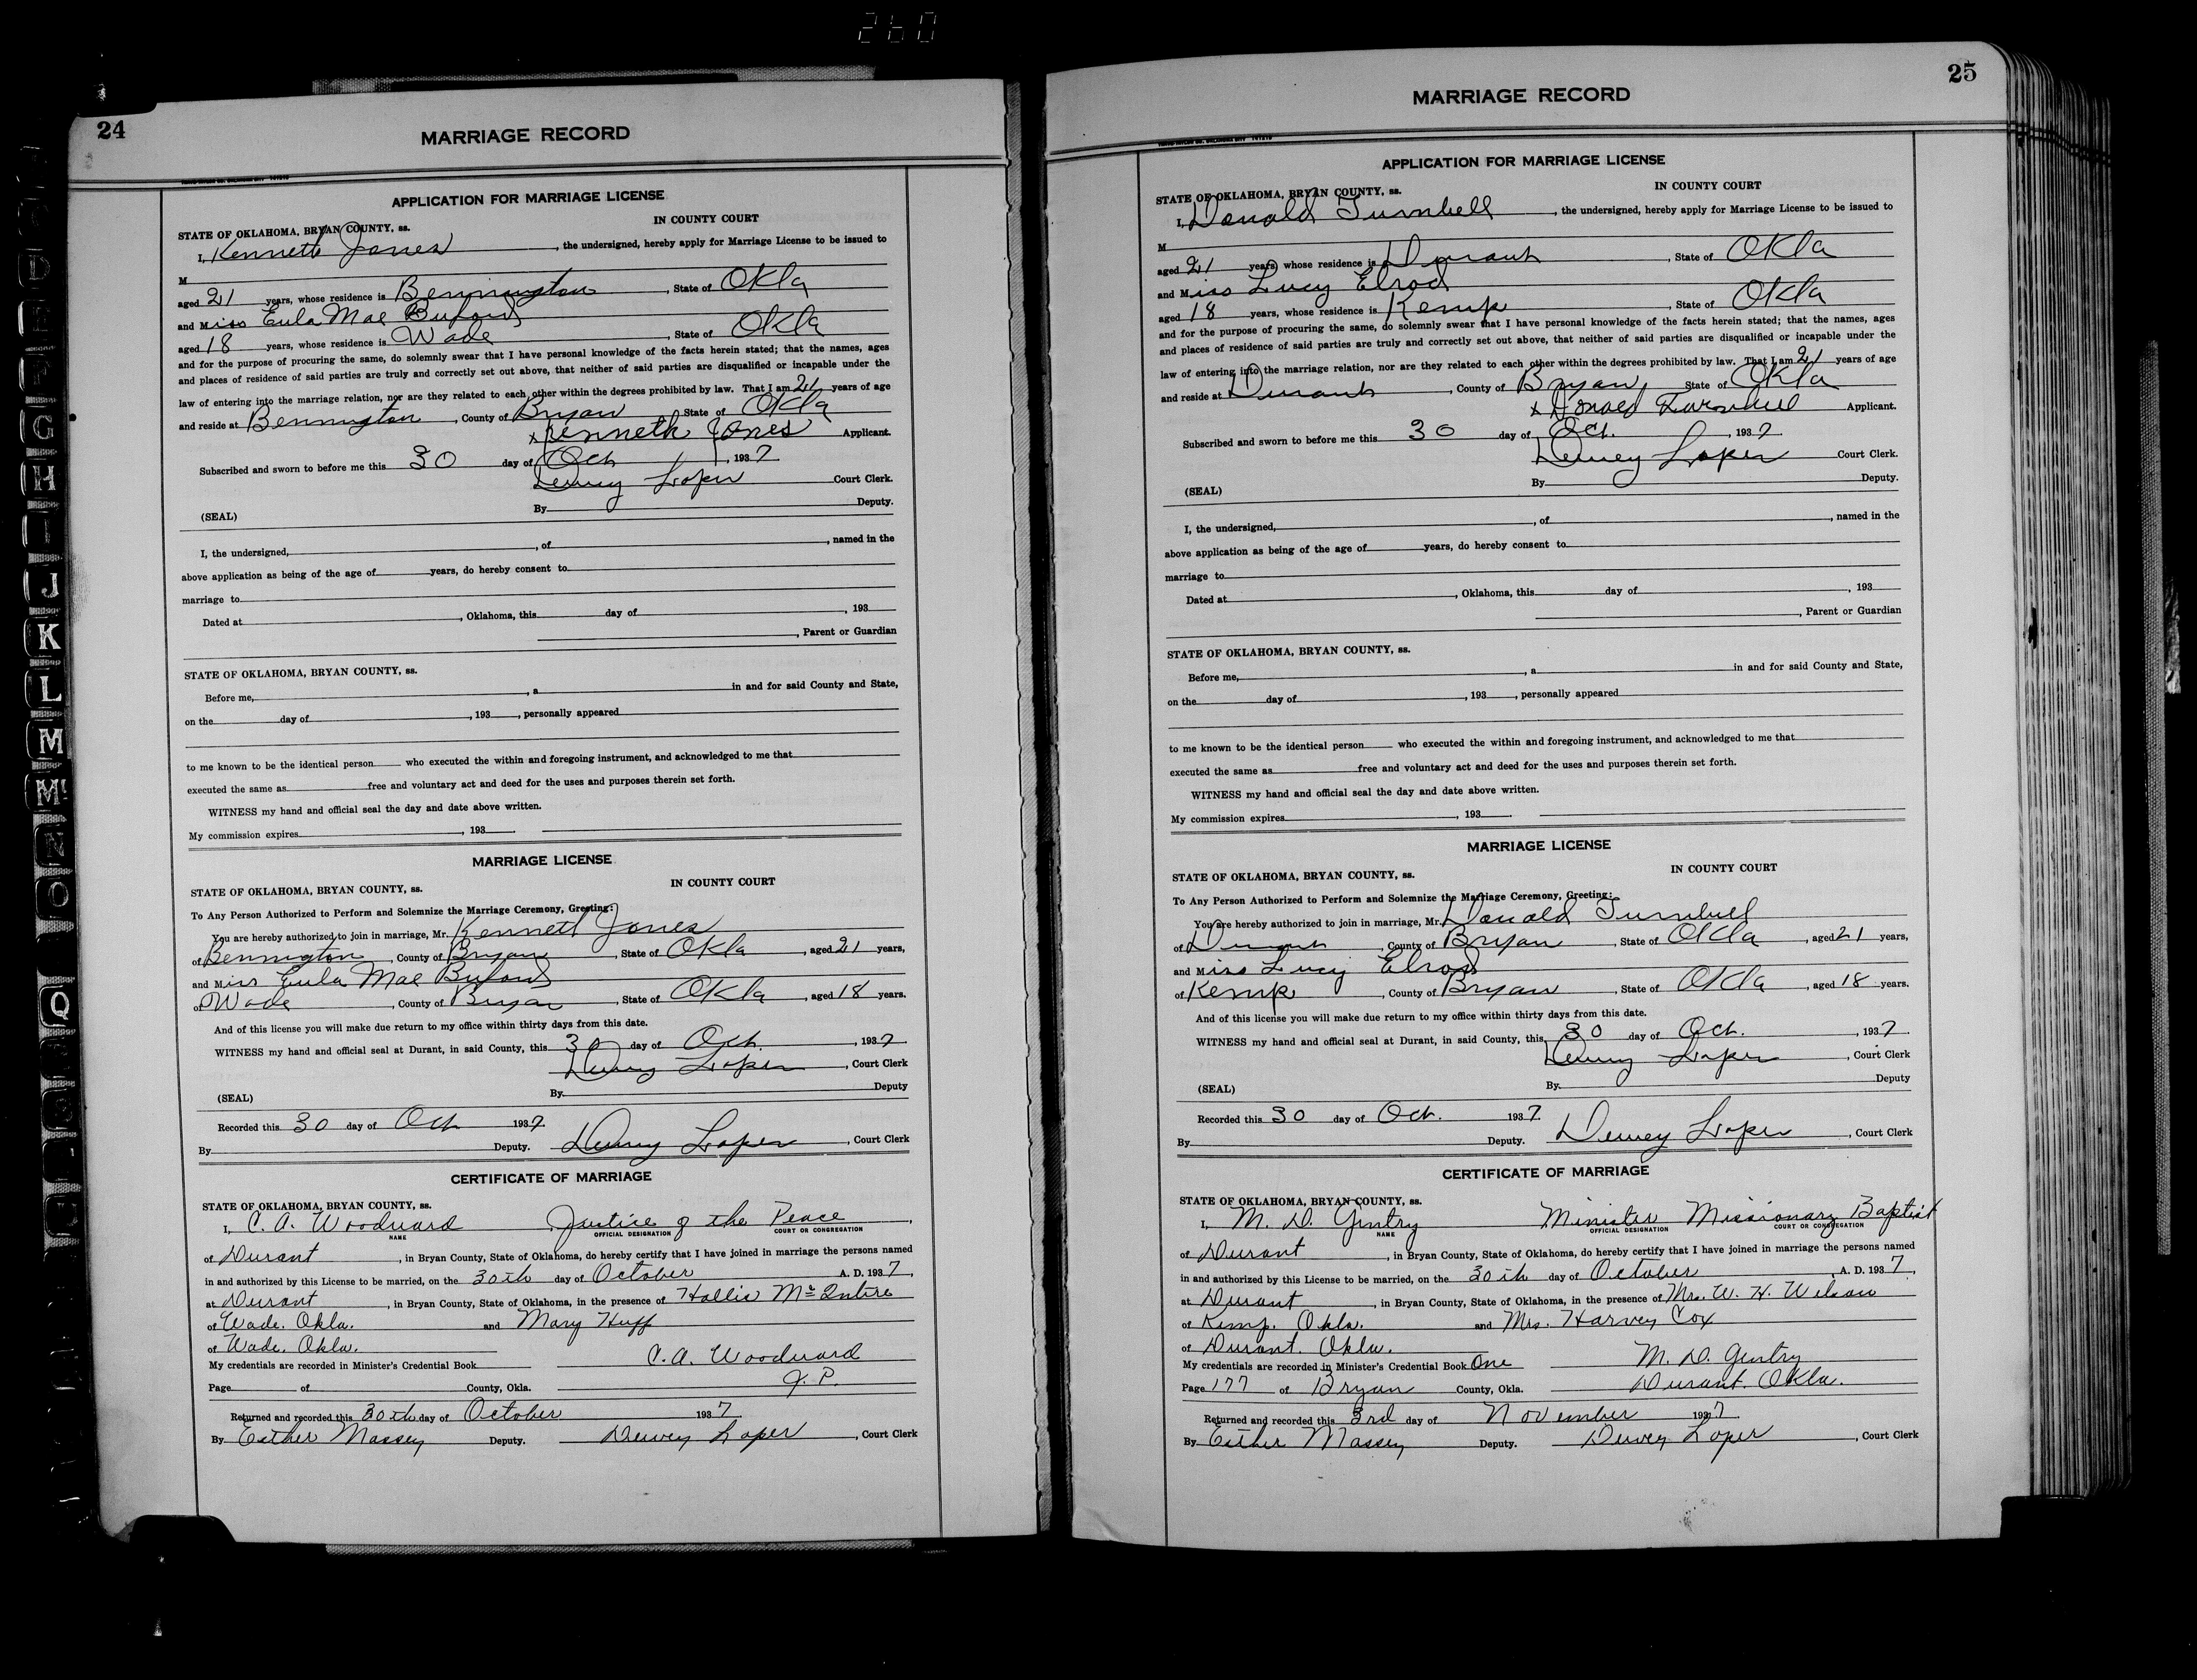 260
24
MARRIAGE RECORD
APPLICATION FOR MARRIAGE LICENSE
STATE OF OKLAHOMA, BRYAN COUNTY, ss. IN COUNTY COURT
I, Kenneth Jones, the undersigned, hereby apply for Marriage License to be issued to
M
aged 21 years, whose residence is Bennington, State of Okla
and Miss Eula Mae Buford
aged 18 years, whose residence is Wade, State of Okla
and for the purpose of procuring the same, do solemnly swear that I have personal knowledge of the facts herein stated; that the names, ages
and places of residence of said parties are truly and correctly set out above, that neither of said parties are disqualified or incapable under the
law of entering into the marriage relation, nor are they related to each other within the degrees prohibited by law. That I am 21 years of age
and reside at Bennington, County of Bryan State of Okla
x Kenneth Jones Applicant.
Subscribed and sworn to before me this 30 day of Oct, 1937
Dewey Loper Court Clerk.
(SEAL) By Deputy.
I, the undersigned, , of , named in the
above application as being of the age of years, do hereby consent to
marriage to
Dated at , Oklahoma, this day of , 193
, Parent or Guardian
STATE OF OKLAHOMA, BRYAN COUNTY, ss.
Before me, , a in and for said County and State,
on the day of , 193 , personally appeared
to me known to be the identical person who executed the within and foregoing instrument, and acknowledged to me that
executed the same as free and voluntary act and deed for the uses and purposes therein set forth.
WITNESS my hand and official seal the day and date above written.
My commission expires , 193
MARRIAGE LICENSE
STATE OF OKLAHOMA, BRYAN COUNTY, ss. IN COUNTY COURT
To Any Person Authorized to Perform and Solemnize the Marriage Ceremony, Greeting:
You are hereby authorized to join in marriage, Mr. Kenneth Jones
of Bennington, County of Bryan, State of Okla, aged 21 years,
and Miss Eula Mae Buford
of Wade, County of Bryan, State of Okla, aged 18 years.
And of this license you will make due return to my office within thirty days from this date.
WITNESS my hand and official seal at Durant, in said County, this 30 day of Oct., 1937
Dewey Loper, Court Clerk
(SEAL) By Deputy
Recorded this 30 day of Oct 1937.
By Deputy. Dewey Loper, Court Clerk
CERTIFICATE OF MARRIAGE
STATE OF OKLAHOMA, BRYAN COUNTY, ss.
I, C. A. Woodward, Justice of the Peace,
NAME OFFICIAL DESIGNATION COURT OR CONGREGATION
of Durant, in Bryan County, State of Oklahoma, do hereby certify that I have joined in marriage the persons named
in and authorized by this License to be married, on the 30th day of October A. D. 1937,
at Durant, in Bryan County, State of Oklahoma, in the presence of Hollis McIntire
of Wade, Okla. and Mary Huff
of Wade, Okla.
My credentials are recorded in Minister's Credential Book C. A. Woodward
Page of County, Okla. J. P.
Returned and recorded this 30th day of October 1937
By Esther Massey Deputy. Dewey Loper, Court Clerk
25
MARRIAGE RECORD
APPLICATION FOR MARRIAGE LICENSE
STATE OF OKLAHOMA, BRYAN COUNTY, ss. IN COUNTY COURT
I, Donald Turnbull, the undersigned, hereby apply for Marriage License to be issued to
M
aged 21 years, whose residence is Durant, State of Okla
and Miss Lucy Elrod
aged 18 years, whose residence is Kemp, State of Okla
and for the purpose of procuring the same, do solemnly swear that I have personal knowledge of the facts herein stated; that the names, ages
and places of residence of said parties are truly and correctly set out above, that neither of said parties are disqualified or incapable under the
law of entering into the marriage relation, nor are they related to each other within the degrees prohibited by law. That I am 21 years of age
and reside at Durant, County of Bryan, State of Okla
x Donald Turnbull Applicant.
Subscribed and sworn to before me this 30 day of Oct., 1937
Dewey Loper Court Clerk.
(SEAL) By Deputy.
I, the undersigned, , of , named in the
above application as being of the age of years, do hereby consent to
marriage to
Dated at , Oklahoma, this day of , 193
, Parent or Guardian
STATE OF OKLAHOMA, BRYAN COUNTY, ss.
Before me, , a in and for said County and State,
on the day of , 193 , personally appeared
to me known to be the identical person who executed the within and foregoing instrument, and acknowledged to me that
executed the same as free and voluntary act and deed for the uses and purposes therein set forth.
WITNESS my hand and official seal the day and date above written.
My commission expires , 193
MARRIAGE LICENSE
STATE OF OKLAHOMA, BRYAN COUNTY, ss. IN COUNTY COURT
To Any Person Authorized to Perform and Solemnize the Marriage Ceremony, Greeting:
You are hereby authorized to join in marriage, Mr. Donald Turnbull
of Durant, County of Bryan, State of Okla, aged 21 years,
and Miss Lucy Elrod
of Kemp, County of Bryan, State of Okla, aged 18 years.
And of this license you will make due return to my office within thirty days from this date.
WITNESS my hand and official seal at Durant, in said County, this 30 day of Oct., 1937
Dewey Loper, Court Clerk
(SEAL) By Deputy
Recorded this 30 day of Oct. 1937
By Deputy. Dewey Loper, Court Clerk
CERTIFICATE OF MARRIAGE
STATE OF OKLAHOMA, BRYAN COUNTY, ss.
I, M. D. Gentry Minister Missionary Baptist
NAME OFFICIAL DESIGNATION COURT OR CONGREGATION
of Durant, in Bryan County, State of Oklahoma, do hereby certify that I have joined in marriage the persons named
in and authorized by this License to be married, on the 30th day of October, A. D. 1937,
at Durant, in Bryan County, State of Oklahoma, in the presence of Mrs. W. H. Wilson
of Kemp, Okla. and Mrs. Harvey Cox
of Durant, Okla.
My credentials are recorded in Minister's Credential Book One M. D. Gentry
Page 177 of Bryan County, Okla. Durant, Okla.
Returned and recorded this 3rd day of November 1937
By Esther Massey Deputy. Dewey Loper, Court Clerk
G
H
I
J
K
L
M
Mc
N
O
Q